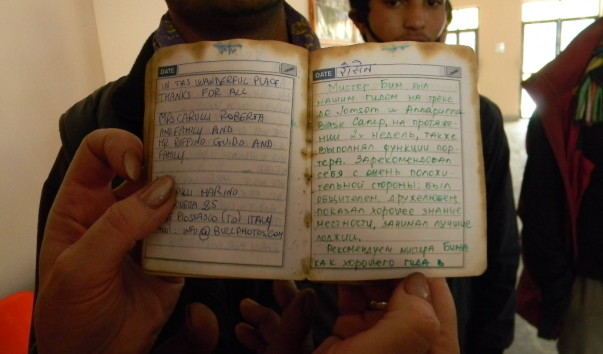 DATE
IN THIS WANDERFUL PLACE
THANKS FOR ALL
MASCARULLI ROBERTA
AND FAMILY AND
MR RUFFINO GUIDO AND
FAMILY
MARINO
85
PIOSSASCO (TO) ITALY
INFO@BULLPHOTOS.COM
DATE
Мистер Бим был
нашим гидом на треке
до Jomsom и Annapurna
Base Camp, на протяже-
нии 2х недель, также
выполнял функции пор-
тера. Зарекомендовал
себя с очень положи-
тельной стороны: был
общителен, дружелюбен,
показал хорошее знание
местности, занимал лучшие
лоджии.
Рекомендуем мистера Бима
как хорошего гида в